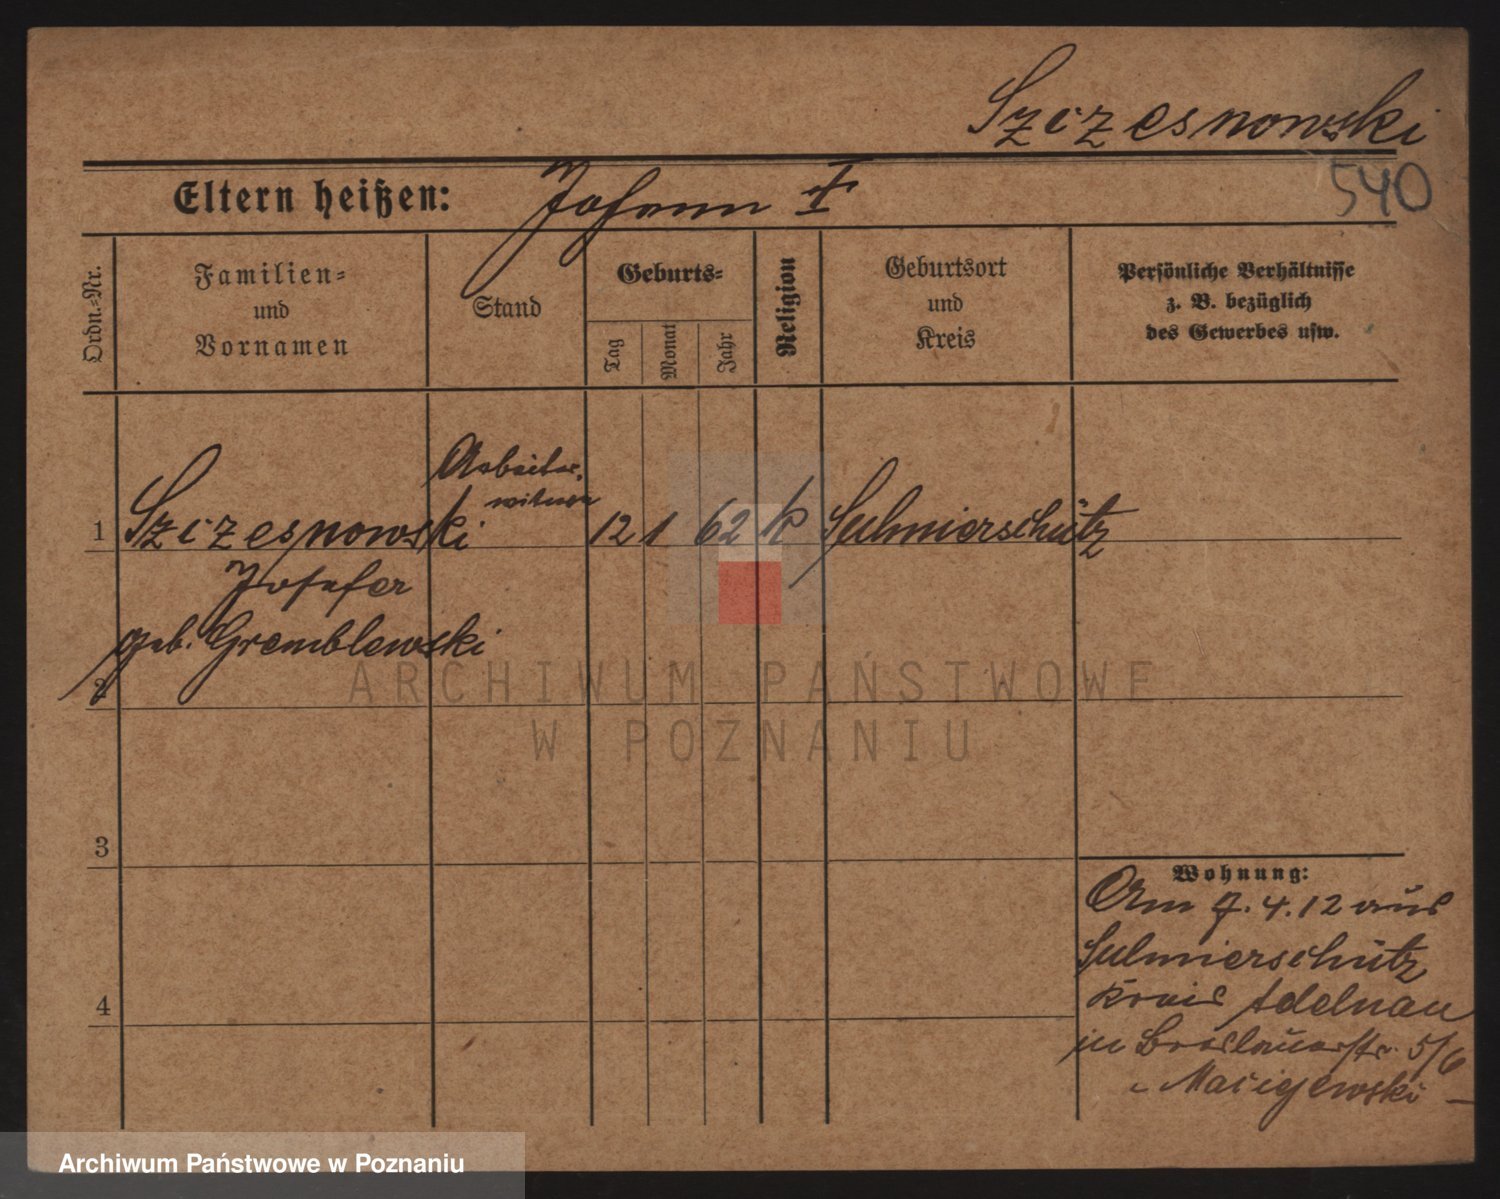 Szczesnowski
540
Eltern heißen: Johann †
Ordn.-Nr.
Familien-
und
Vornamen
Stand
Geburts-
Tag
Monat
Jahr
Religion
Geburtsort
und
Kreis
Persönliche Verhältnisse
z. B. bezüglich
des Gewerbes usw.
Arbeiter-
witwe
1 Szczesnowski 12 1 62 k Sulmierschütz
Josefa
geb. Gremblewski
2
3
4
Wohnung:
Am 7. 4. 12 aus
Sulmierschütz
Kreis Adelnau
in Breslauerstr. 5/6
Macigewski
ARCHIWUM PAŃSTWOWE
W POZNANIU
Archiwum Państwowe w Poznaniu